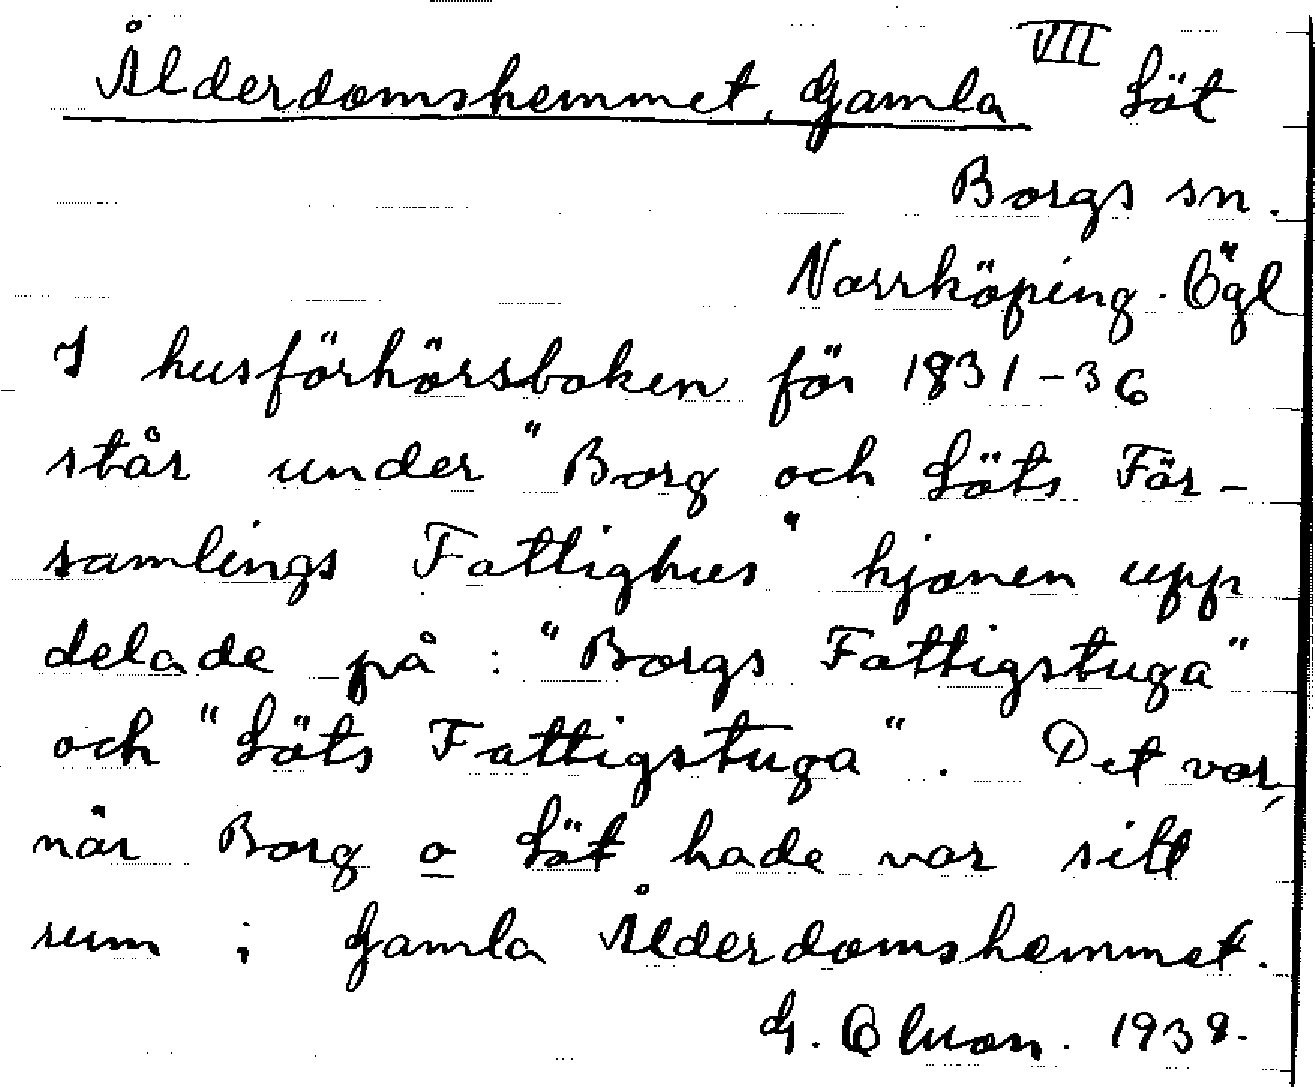 Ålderdomshemmet, Gamla VII Löt
Borgs sn.
Norrköping. Ögl
I husförhörsboken för 1831-36
står under "Borg och Löts För-
samlings Fattighus" hjonen upp
delade på: "Borgs Fattigstuga"
och "Löts Fattigstuga". Det var,
när Borg o Löt hade var sitt
rum i Gamla Ålderdomshemmet.
G.